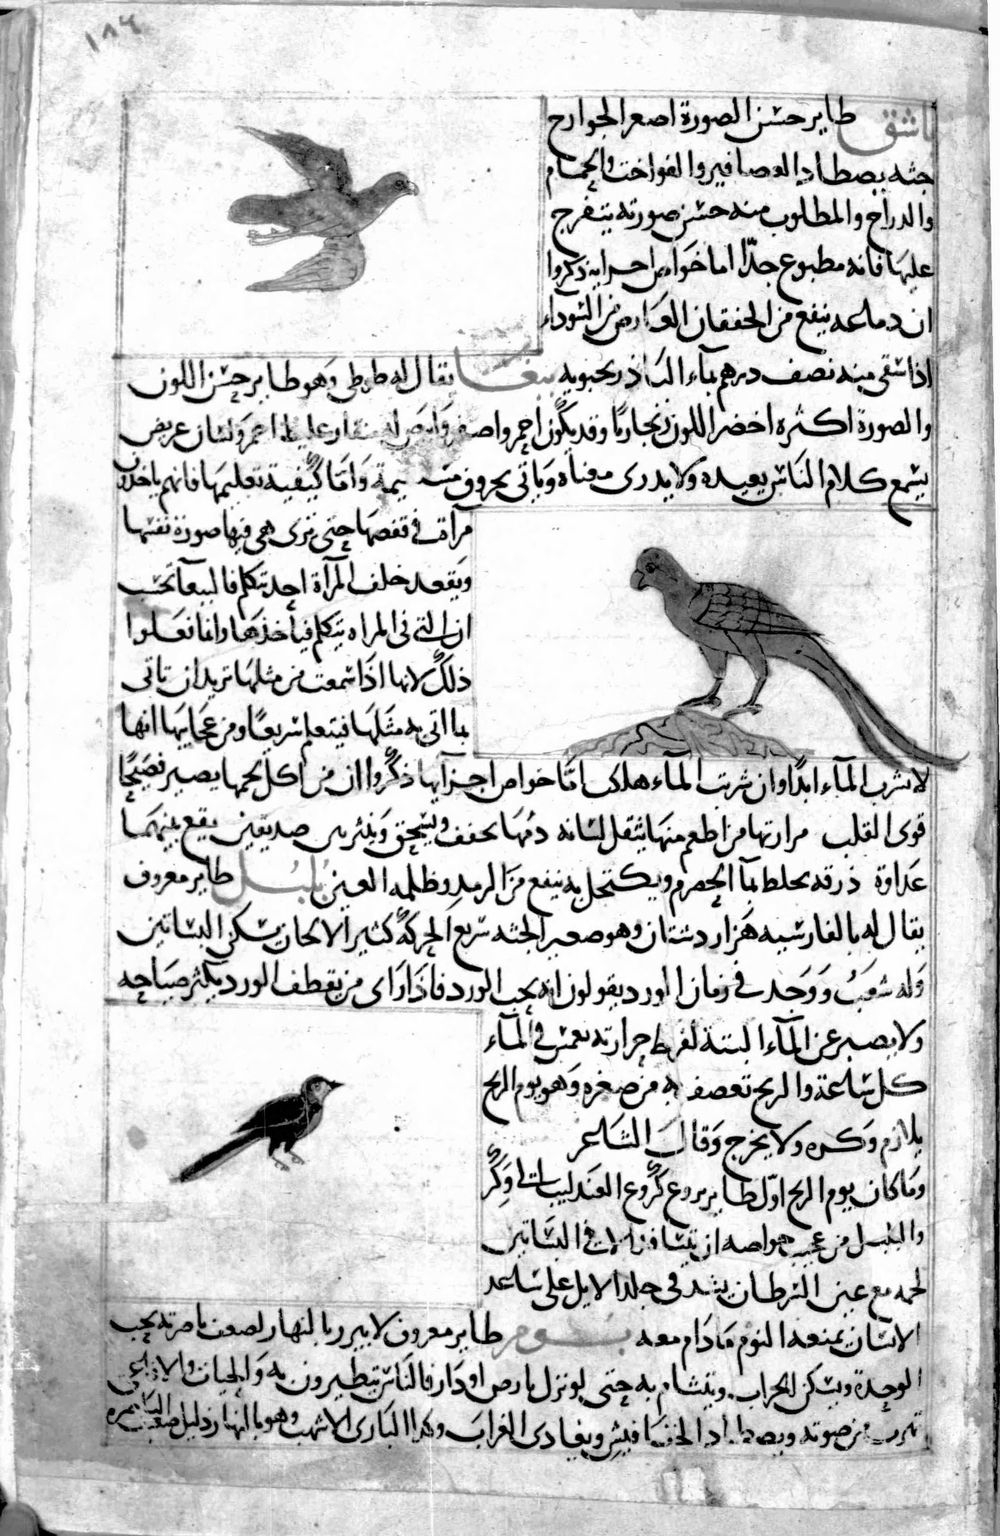 ١٨٦
باشق طاير حسن الصورة اصغر الجوارح
جثه يصطاد العصافير والفواخت والحمام
والدراج والمطلوب منه حسن صورته يتفرج
عليها فانه مطبوع جدّا اما خواص اجزايه ذكروا
ان دماغه ينفع من الخفقان العارض من السوداء
اذا سقى منه نصف درهم بماء الباذرنجبويه ببغا يقال له طوطى وهو طاير حسن اللون
والصورة اكثره اخضر اللون زنجاريا وقد يكون احمر واصفر وابيض له منقار غليظ احمر ولسان عريض
يسمع كلام الناس يعيده ولا يدرى معناه وياتى بحروف واما كيفية تعليمها فانهم ياخذون
مرآة فى قفصها حتى ترى هى فيها صورة نفسها
ويقعد خلف المرآة احد يتكلم فالببغا تحسب
ان التى فى المراه يتكلم فياخذها وانما فعلوا
ذلك لانها اذا سمعت من مثلها تريد ان تاتى
بما اتى به مثلها فيتعلم سريعا ومن عجايبها انها
لا تشرب الماء ابدا وان شربت الماء هلكت اما خواص اجزايها ذكروا ان من اكل لحمها يصير فصيحا
قوى القلب مرارتها من اطعم منها يثقل لسانه دمها يجفف ويسحق وينثر بين صديقين يقع بينهما
عداوة ذرقه يخلط بماء الحصرم ويكتحل به ينفع من الرمد وظلمه العين بلبل طاير معروف
يقال له بالفارسيه هزار دستان وهو صغير الجثه سريع الحركة كثير الالحان يسكن البساتين
وله شغب ووجد فى زمان الورد يقولون انه يحب الورد فاذا راى من يقطف الورد يكثر صياحه
ولا يصبر عن الماء البتة لفرط حرارته يغمس فى الماء
كل ساعة والريح تعصف به من صغره وهو يوم الريح
يلازم وكره ولا يخرج وقال الشاعر
وما كان يوم الريح اوّل طاير يروع كروع العندليب الى وكر
والبلبل من عجيب خواصه ان فى البساتين
لحمه مع عين السرطان يشد فى جلد الايل على ساعد
الانسان يمنعه النوم ما دام معه بوم طاير معروف لا يبرز بالنهار لضعف باصرته يحب
الوحدة ويسكن الخراب ويتشام به حتى لو نزل بارض او دار فالناس يتطيرون به والحيات والافاعى
تهرب من صوته ويصطاد الخفافيش ويعادى الغراب وكذا البازى الاشهب وهو بالنهار ذليل ضعيف الباصره